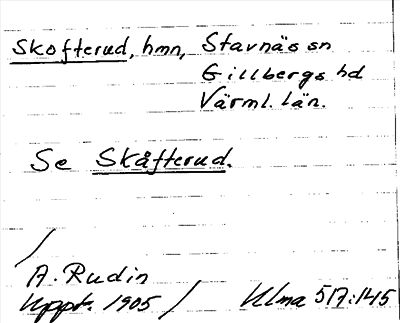 Skofterud, hmn, Stavnäs sn
Gillbergs hd
Värml. län.
Se Skåfterud.
/
A. Rudin
Uppt. 1905 / Ulma 517:145